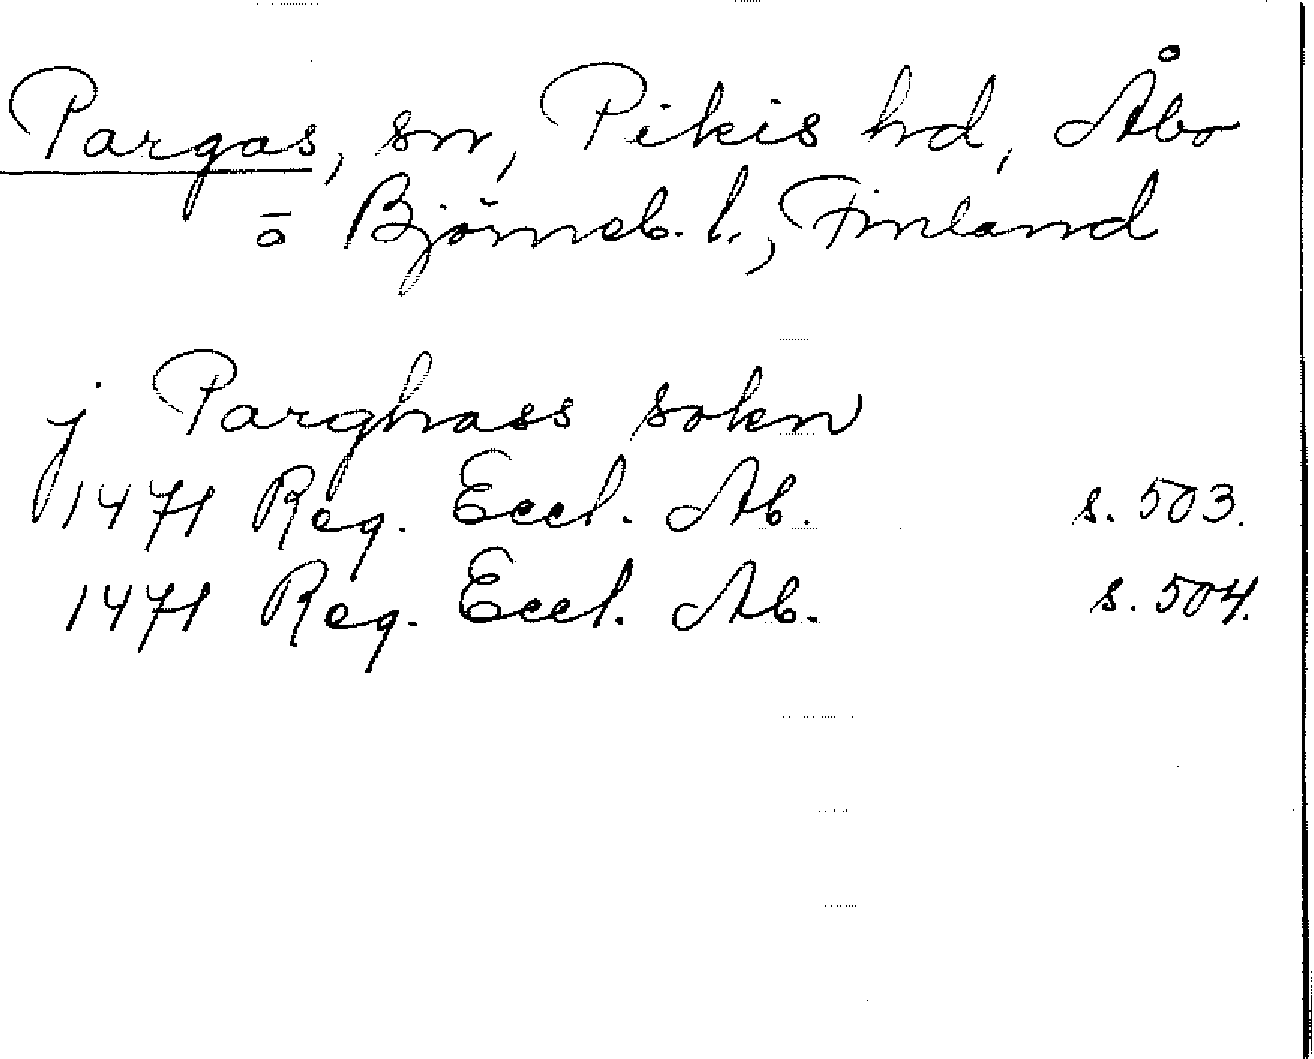 Pargas, sn, Pikis hd, Åbo
o Björneb. l., Finland
j Parghass sokn
1471 Reg. Eccl. Ab. s. 503.
1471 Reg. Eccl. Ab. s. 504.